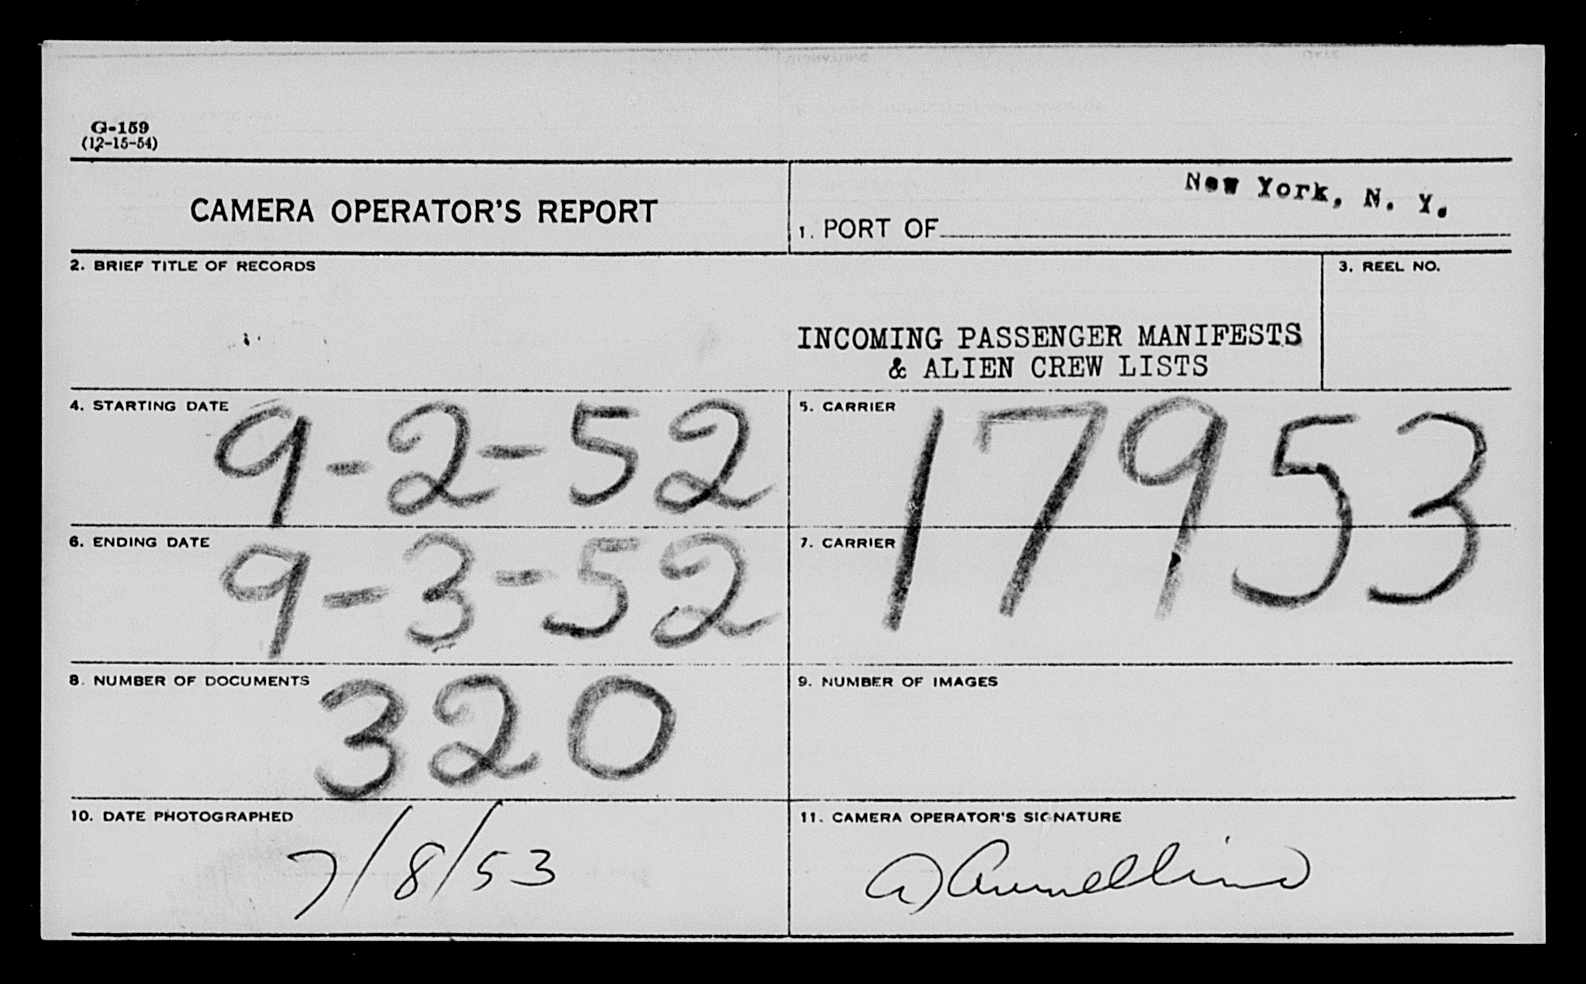 G-159
(12-15-54)
CAMERA OPERATOR'S REPORT
1. PORT OF New York, N. Y.
2. BRIEF TITLE OF RECORDS
INCOMING PASSENGER MANIFESTS
& ALIEN CREW LISTS
3. REEL NO.
4. STARTING DATE 9-2-52
5. CARRIER 17953
6. ENDING DATE 9-3-52
7. CARRIER
8. NUMBER OF DOCUMENTS 320
9. NUMBER OF IMAGES
10. DATE PHOTOGRAPHED 7/8/53
11. CAMERA OPERATOR'S SIGNATURE